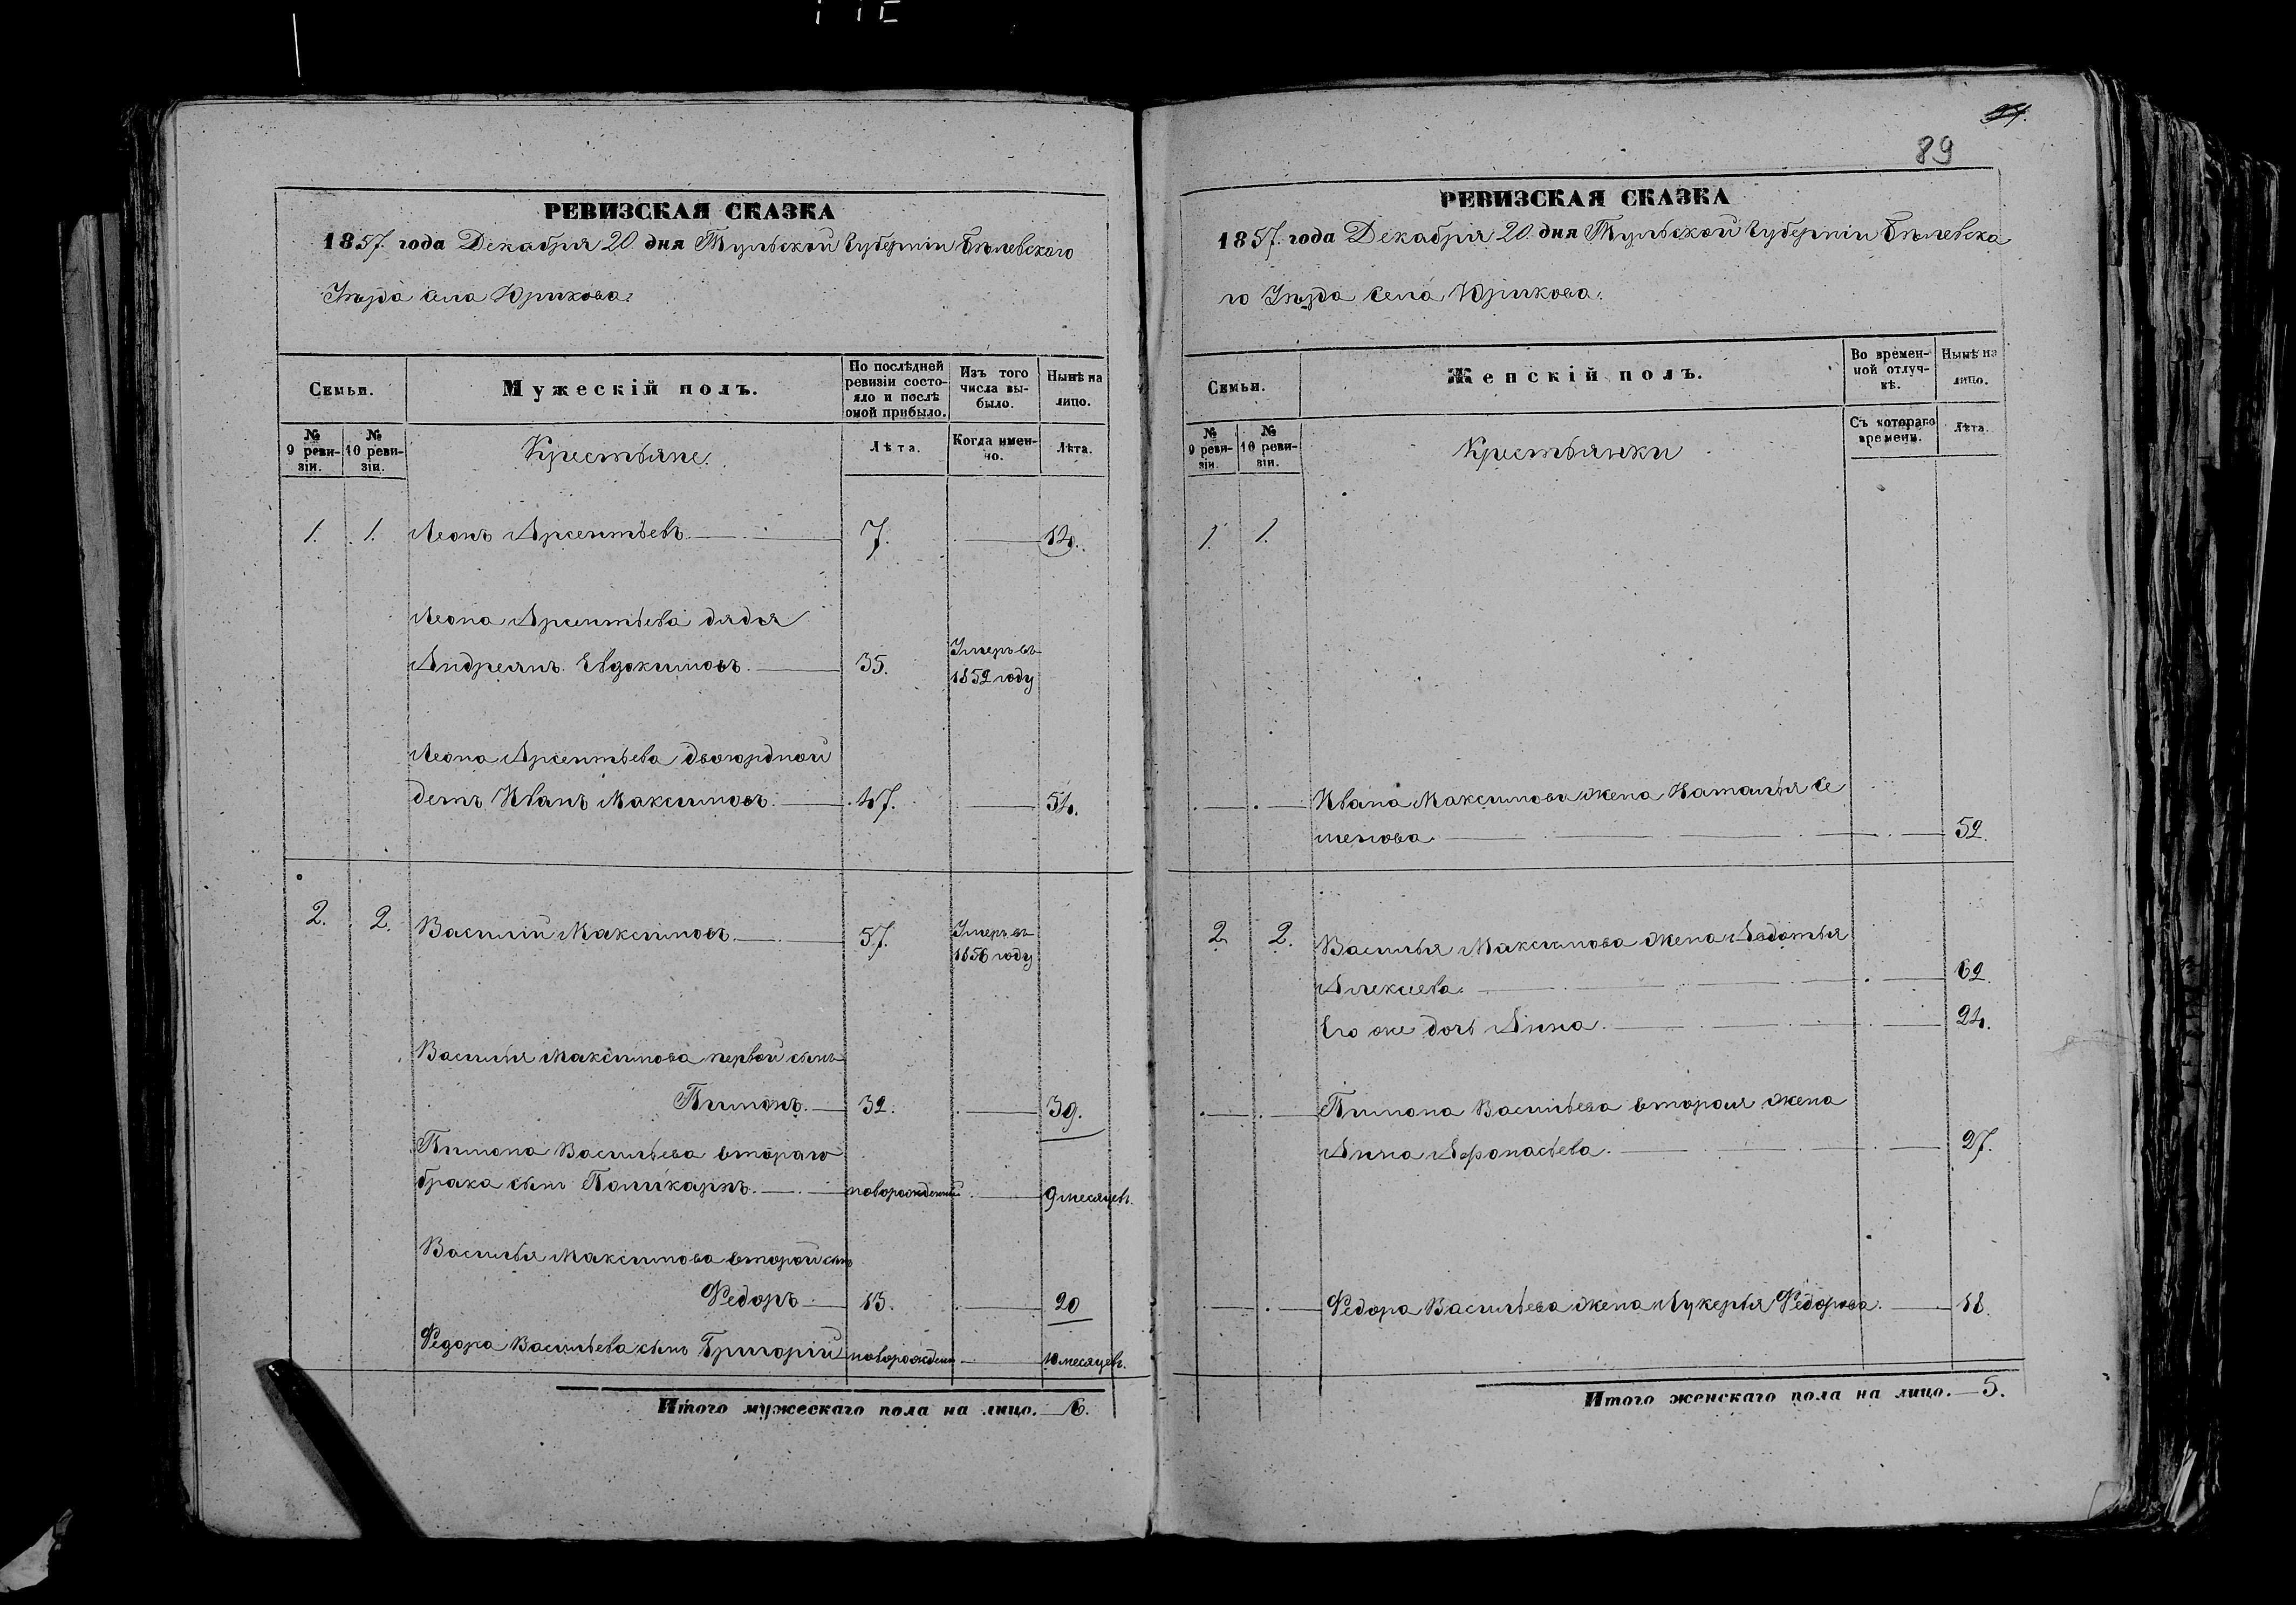 89
РЕВИЗСКАЯ СКАЗКА
1857. года Декабря 20. дня Тульской Губерніи Бѣлевского
Уѣзда села Юрикова.
Семьи.
Мужескій полъ.
По послѣдней ревизіи состояло и послѣ оной прибыло.
Изъ того числа выбыло.
Нынѣ на лицо.
№ 9 ревизіи.
№ 10 ревизіи.
Крестьяне.
Лѣта.
Когда именно.
Лѣта.
1. 1. Леонъ Арсентьевъ. 7. 14.
Леона Арсентьева дядя
Андреянъ Евдокимовъ. 35. Умеръ въ
1852 году
Леона Арсентьева двоюрдной
детъ Иванъ Максимовъ. 47. 54.
2. 2. Василій Максимовъ. 57. Умеръ въ
1856 году
Василья Максимова первой сынъ
Тимонъ. 32. 39.
Тимона Васильева втораго
брака сынъ Поликарпъ. новорожденный 9 месяцевъ.
Василья Максимова второй сынъ
Федоръ 13. 20
Федора Васильева сынъ Григорій новорожден 10 месяцевъ.
Итого мужескаго пола на лицо. 6.
РЕВИЗСКАЯ СКАЗКА
1857. года Декабря 20. дня Тульской Губерніи Бѣлевска
го Уѣзда Села Юрикова.
Семьи.
Женскій полъ.
Во временной отлучкѣ.
Нынѣ на лицо.
№ 9 ревизіи.
№ 10 ревизіи.
Крестьянки
Съ котораго времени.
Лѣта.
1. 1.
Ивана Максимова жена Наталья Се
менова 52.
2. 2. Василья Максимова жена Авдотья
Алексеева. 62.
Его же дочь Анна. 24.
Тимона Васильева вторая жена
Анна Афонасьева. 27.
Федора Васильева жена Лукерья Федорова. 18.
Итого женскаго пола на лицо. 5.